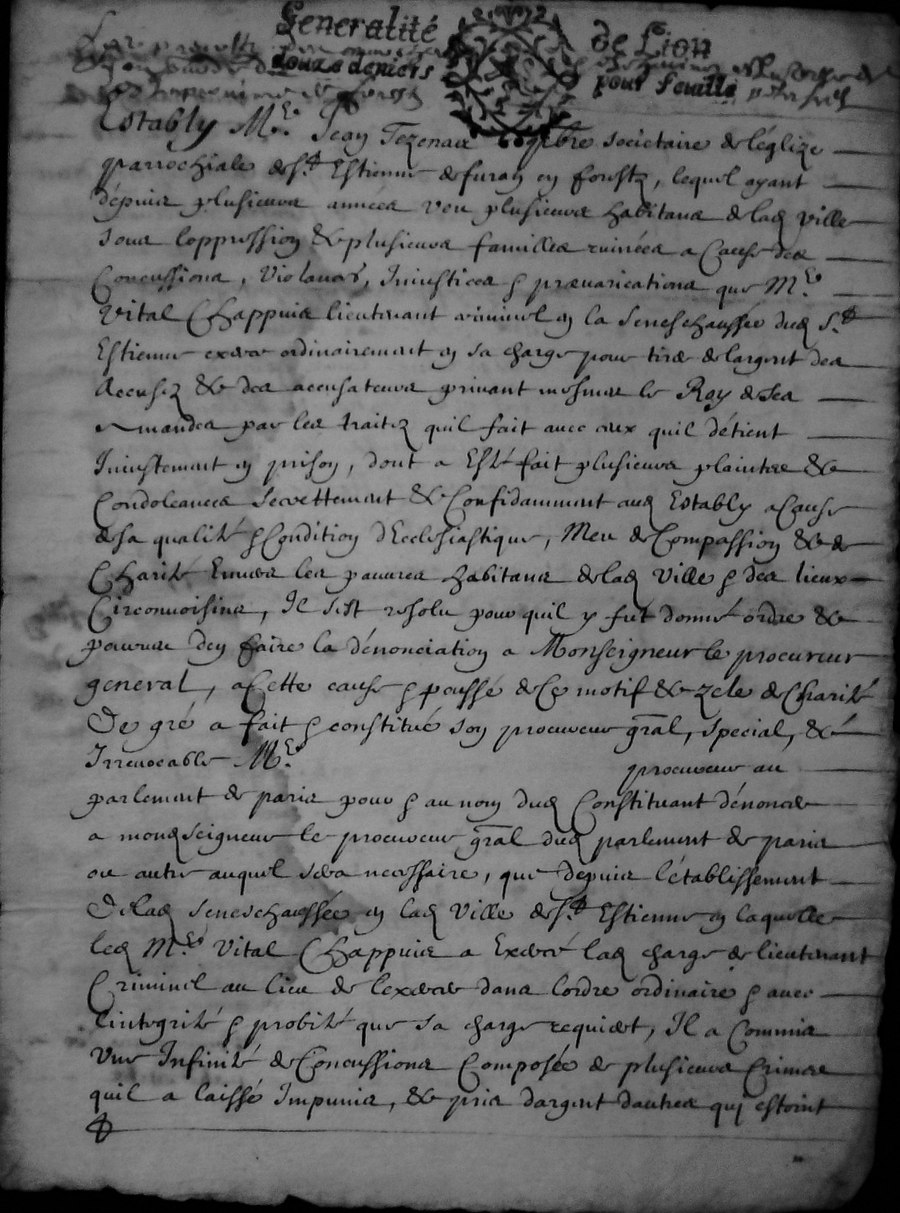 Generalité de Lion
douze deniers pour feuille
Estably Me. Jean Tezenas pbre societaire de léglize
parrochiale de St Estienne de furan en forestz, lequel ayant
dépuis plusieurs années veu plusieurs habitans de lad ville
sous loppression & plusieurs familles ruinées a Cause des
Concussions, Violances, Iniustices & prævarications que Me.
Vital Chappuis lieutenant criminel en la Seneschaussée dud St
Estienne exerce ordinairement en sa charge pour tirer de largent des
Accusez & des accusateurs privant mesmes le Roy de ses
amandes par les traitez quil fait avec ceux quil détient
Iniustement en prison, dont a Esté fait plusieurs plaintes &
Condoleances secrettement & Confidamment aud Estably a Cause
de sa qualité & Condition dEcclesiastique, Meu de Compassion & de
Charité Envers les pauvres habitans de lad Ville & des lieux
Circonvoisins, Il sest resolu pour quil y fut donné ordre &
pouvoir den faire la dénonciation a Monseigneur le procureur
general, a Cette cause & poussé de Ce motif & zele de Charité
De gré a fait & constitué son procureur gnāl, special, &
Irrevocable Me. procureur au
parlement de paris pour & au nom dud Constituant dénoncer
a mondseigneur le procureur gnāl dud parlement de paris
ou autre auquel sera necessaire, que depuis létablissement
De lad Seneschaussée en lad Ville de St Estienne en laquelle
led Me. Vital Chappuis a Exercé lad charge de lieutenant
Criminel au lieu de lexercer dans lordre ordinaire & avec
lintegrité & probité que sa charge requiert, Il a Commis
Une Infinité de Concussions Composée de plusieurs Crimes
quil a laissé Impunis, & pris dargent dautres qui estoint